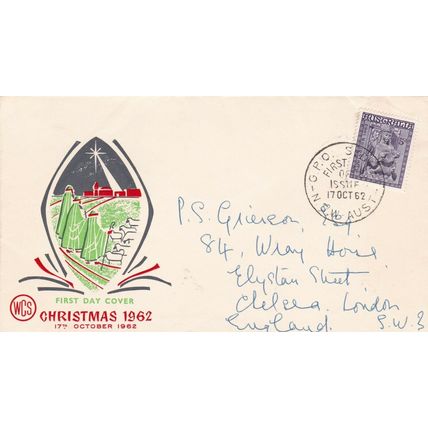 AUSTRALIA
5D
G.P.O. SY
FIRST DAY
OF
ISSUE
17 OCT 62
N.S.W. AUST
P.S. Grierson, Esq.
84, Wray House
Elystan Street,
Chelsea, London
England. S.W.3
FIRST DAY COVER
WCS
CHRISTMAS 1962
17TH OCTOBER 1962